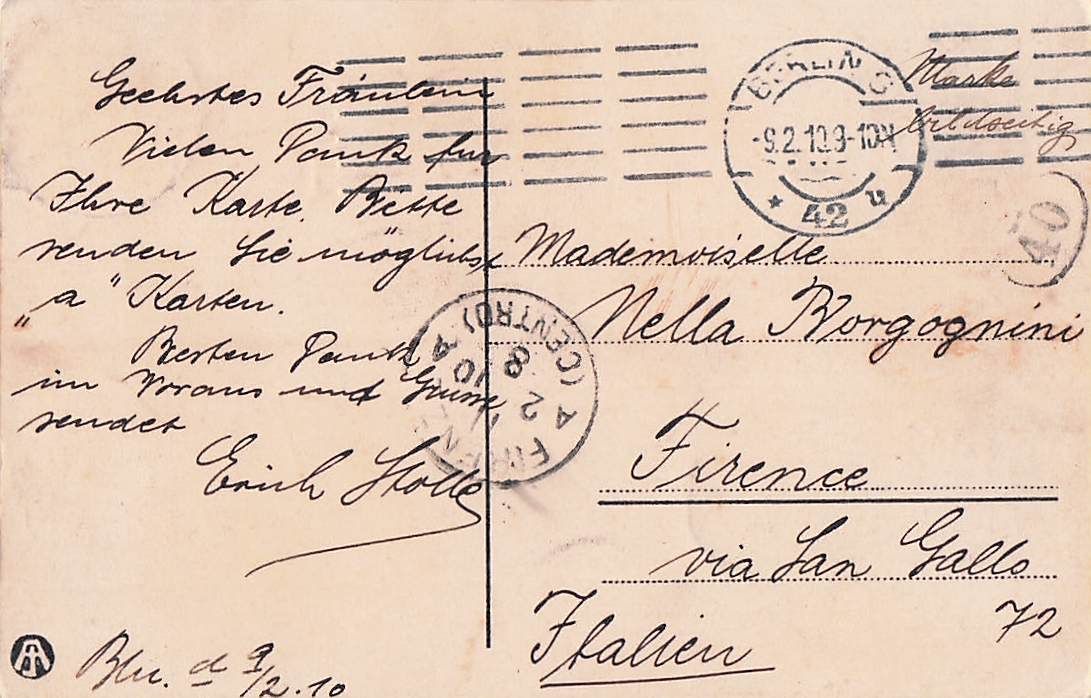 Geehrtes Fräulein
Vielen Dank für
Ihre Karte. Bitte
senden Sie möglichst
„a" Karten.
Besten Dank
im Voraus und Grüsse
sendet
Erich Stolle
Bln. d 9/2.10
BERLIN C
-9.2.10.9-10N
* 42 u
Marke
bildseitig
40
Mademoiselle
Nella Borgognini
Firence
via San Gallo
72
Italien
FIRENZE
(CENTRO)